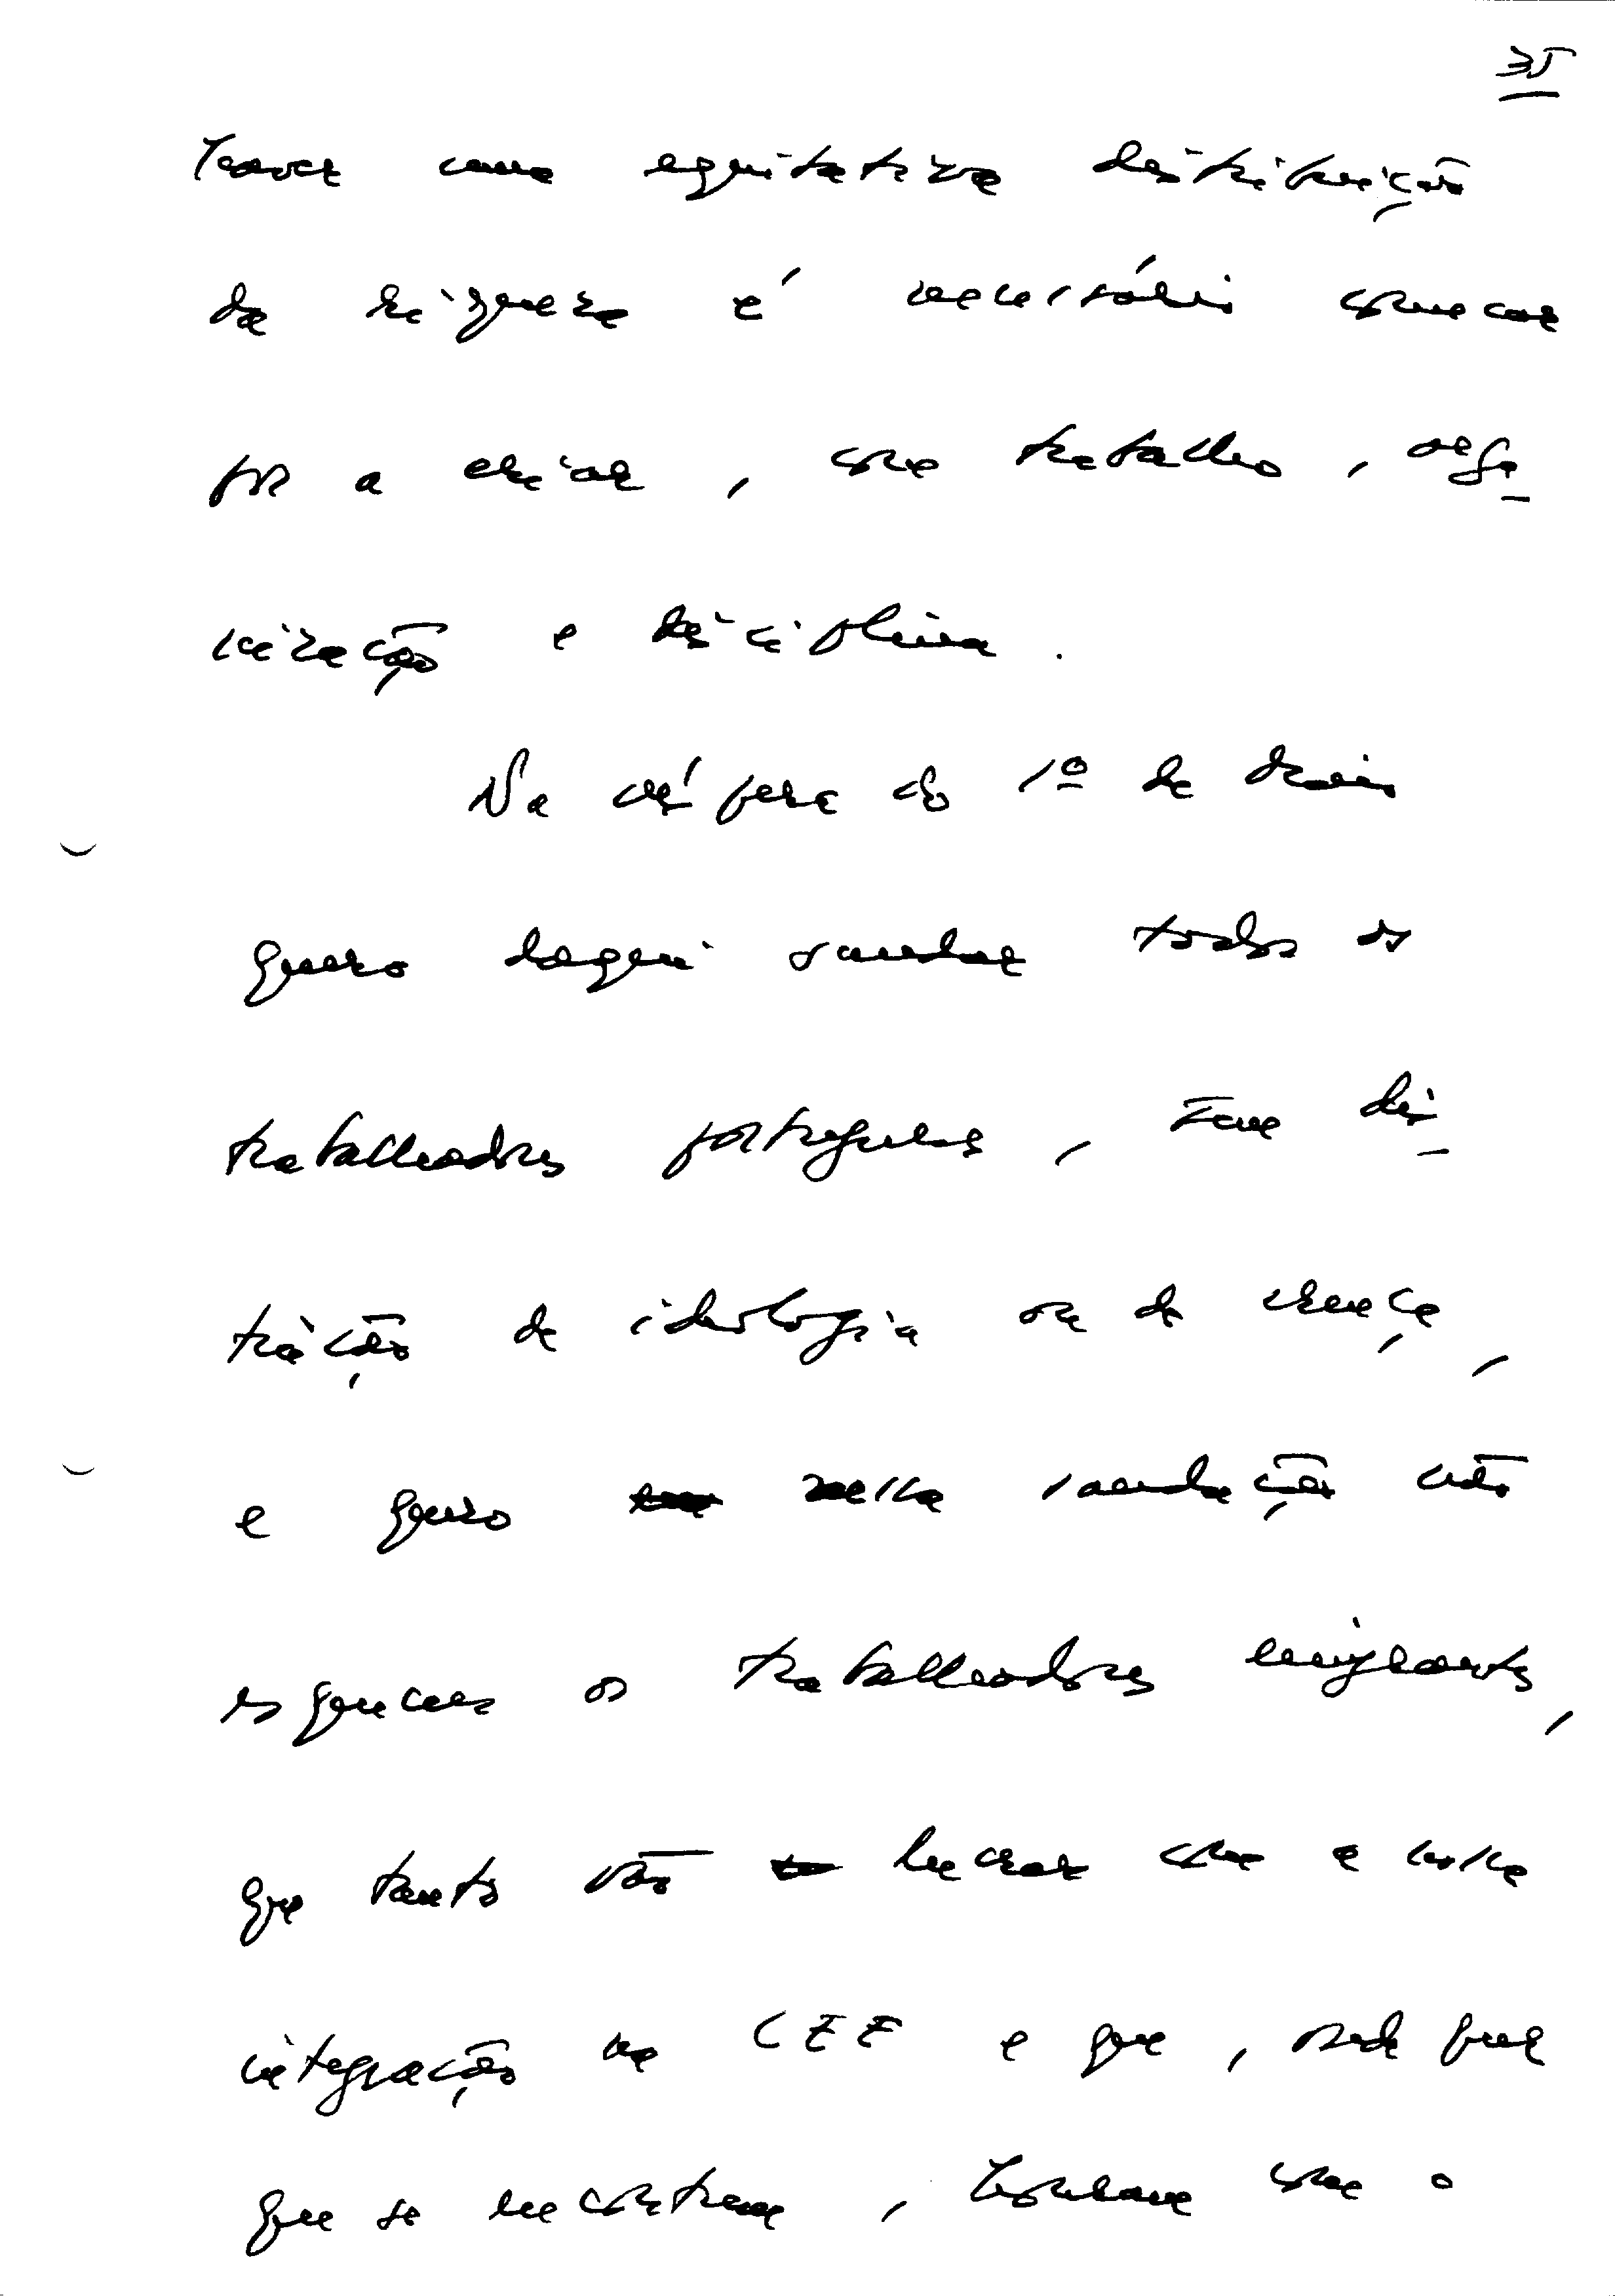 35
haver uma equitativa distribuição
da riqueza é necessário começar
por a criar, com trabalho, orga-
nização e disciplina.
Na véspera do 1º de Maio
quero daqui saudar todos os
trabalhadores portugueses, sem dis-
tinção de ideologia ou de crença,
e quero nessa saudação não
esquecer os trabalhadores emigrantes,
que tanto vão lucrar com a nossa
integração na CEE e que, onde quer
que se encontrem, honram com o